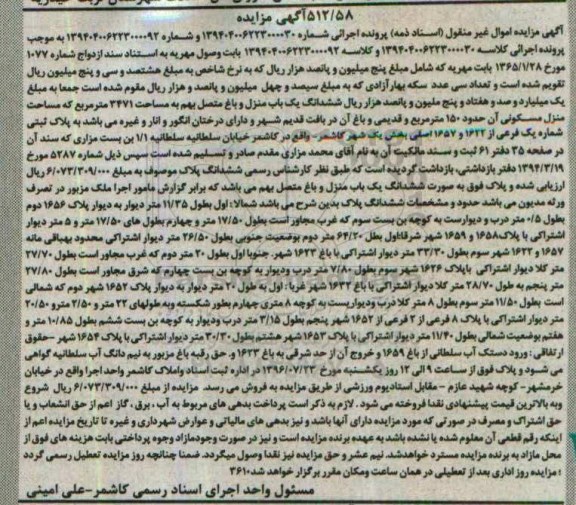 ۵۱۲/۵۸آگهی مزایده
آگهی مزایده اموال غیر منقول (اسناد ذمه) پرونده اجرائی شماره ۱۳۹۴۰۴۰۰۶۲۲۳۰۰۰۰۳۰ و شماره ۱۳۹۴۰۴۰۰۶۲۲۳۰۰۰۰۹۲ به موجب
پرونده اجرائی کلاسه ۱۳۹۴۰۴۰۰۶۲۲۳۰۰۰۰۳۰ و کلاسه ۱۳۹۴۰۴۰۰۶۲۲۳۰۰۰۰۹۲ بابت وصول مهریه به استناد سند ازدواج شماره ۱۰۷۷
مورخ ۱۳۶۵/۱/۲۸ بابت مهریه که شامل مبلغ پنج میلیون و پانصد هزار ریال که به نرخ شاخص به مبلغ هشتصد و سی و پنج میلیون ریال
تقویم شده است و تعداد سی عدد سکه بهار آزادی که به مبلغ سیصد و چهل میلیون و پانصد هزار ریال مقوم شده است جمعا به مبلغ
یک میلیارد و صد و هفتاد و پنج ملیون و پانصد هزار ریال ششدانگ یک باب منزل و باغ متصل بهم به مساحت ۳۴۷۱ مترمربع که مساحت
منزل مسکونی آن حدود ۱۵۰ مترمربع و قدیمی و باغ آن در بافت قدیم شهر و دارای درختان انگور و انار و غیره می باشد به پلاک ثبتی
شماره یک فرعی از ۱۶۲۲ و ۱۶۵۷ اصلی بخش یک شهر کاشمر- واقع در کاشمر خیابان سلطانیه سلطانیه ۱/۱ بن بست مزاری که سند آن
در صفحه ۳۵ دفتر ۶۱ ثبت و سند مالکیت آن به نام آقای محمد مزاری مقدم صادر و تسلیم شده است سپس ذیل شماره ۵۲۸۷ مورخ
۱۳۹۴/۳/۱۹ دفتر بازداشتی، بازداشت گردیده است که طبق نظر کارشناس رسمی ششدانگ پلاک موصوف به مبلغ ۶/۰۷۳/۳۰۹/۰۰۰ ریال
ارزیابی شده و پلاک فوق به صورت ششدانگ یک باب منزل و باغ متصل بهم می باشد که برابر گزارش مامور اجرا ملک مزبور در تصرف
ورثه مدیون می باشد حدود و مشخصات ششدانگ پلاک بدین شرح می باشد شمالا: اول بطول ۱۱/۳۵ متر دیوار به دیوار پلاک ۱۶۵۶ دوم
بطول ۰/۵ متر درب و دیواریست به کوچه بن بست سوم که غرب مجاور است بطول ۱۷/۵۰ متر و چهارم بطول های ۱۷/۵۰ متر و ۵ متر دیوار
اشتراکی با پلاک۱۶۵۸ و ۱۶۵۹ شهر شرقا:اول بطل ۶۴/۲۰ متر دوم بوضعیت جنوبی بطول ۲۶/۵۰ متر دیوار اشتراکی محدود بهباقی مانه
۱۶۵۷ و ۱۶۲۲ شهر سوم بطول ۳۳/۳۰ متر دیوار اشتراکی با باغ ۱۶۲۳ شهر. جنوبا اول بطول ۲۰ متر دوم که غرب مجاور است بطول ۲۷/۷۰
متر کلا دیوار اشتراکی باپلاک ۱۶۲۶ شهر سوم بطول ۷/۸۰ متر درب ودیوار به کوچه بن بست چهارم که شرق مجاور است بطول ۲۷/۸۰
متر پنجم به طول ۲۸/۷۰ متر کلا دیوار اشتراکی با باغ ۱۶۳۲ شهر غربا: اول به طول ۲۰ متر دیوار به دیوار پلاک ۱۶۵۲ شهر دوم که شمالی
است بطول ۱۱/۵۰ متر سوم بطول ۸ متر کلا درب ودیواریست به کوچه ۸ متری چهارم بطور شکسته وبه طولهای ۲۲ متر و ۲/۵۰ مترو ۲۰/۵۰
متر دیوار اشتراکی با پلاک ۸ فرعی از ۲ فرعی از ۱۶۵۲ شهر پنجم بطول ۳/۱۵ متر درب ودیوار به کوچه بن بست ششم بطول ۱۰/۸۵ متر و
هفتم بوضعیت شمالی بطول ۱۱/۴۰ متر دیوار اشتراکی با پلاک ۱۶۵۳ شهر هشتم بطول ۳۰/۳۰ متر دیوار اشتراکی با پلاک ۱۶۵۴ شهر -حقوق
ارتفاقی : ورود دستک آب سلطانی از باغ ۱۶۵۹ و خروج آن از حد شرقی به باغ ۱۶۲۳ و. حق رقبه باغ مزبور به نیم دانگ آب سلطانیه گواهی
می شود و پلاک فوق از ساعت ۹ الی ۱۲ روز یکشنبه مورخ ۱۳۹۶/۰۷/۲۳ در اداره ثبت اسناد واملاک کاشمر واحد اجرا واقع در خیابان
خرمشهر- کوچه شهید عازم - مقابل استادیوم ورزشی از طریق مزایده به فروش می رسد. مزایده از مبلغ ۶/۰۷۳/۳۰۹/۰۰۰ ریال شروع
وبه بالاترین قیمت پیشنهادی نقدا فروخته می شود . لازم به ذکر است پرداخت بدهی های مربوط به آب ، برق ، گاز اعم از حق انشعاب و یا
حق اشتراک و مصرف در صورتی که مورد مزایده دارای آنها باشد و نیز بدهی های مالیاتی و عوارض شهرداری و غیره تا تاریخ مزایده اعم از
اینکه رقم قطعی آن معلوم شده یا نشده باشد به عهده برنده مزایده است و نیز در صورت وجودمازاد وجوه پرداختی بابت هزینه های فوق از
محل مازاد به برنده مزایده مسترد خواهدشد. نیم عشر و حق مزایده نیز نقدا وصول میگردد. ضمنا چنانچه روز مزایده تعطیل رسمی گردد
؛ مزایده روز اداری بعد از تعطیلی در همان ساعت ومکان مقرر برگزار خواهد شد ۳۶۱۰
مسئول واحد اجرای اسناد رسمی کاشمر-علی امینی